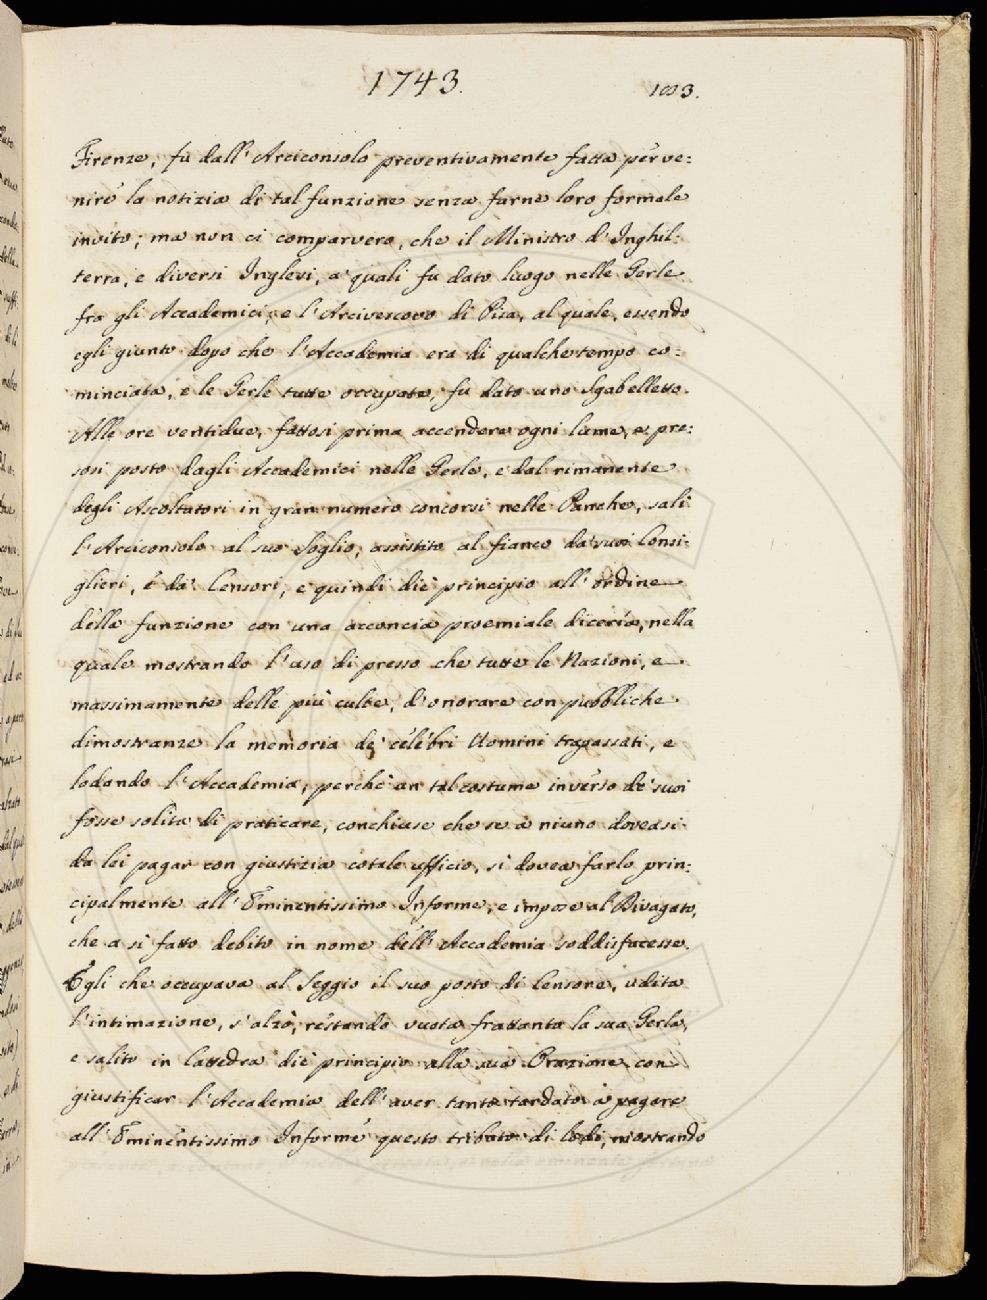 1743.
1003.
Firenze, fù dall' Arciconsolo preventivamente fatta perve:
nire la notizia di tal funzione senza farne loro formale
invito; ma non ci comparvero, che il Ministro d'Inghil:
terra, e diversi Inglesi, a' quali fu dato luogo nelle Gerle
fra gli Accademici; e l'Arcivescovo di Pisa, al quale, essendo
egli giunto dopo che l'Accademia era di qualche tempo co:
minciata, e le Gerle tutte occupate, fu dato uno Sgabelletto.
Alle ore ventidue, fattosi prima accendere ogni lume, e pre:
sosi posto dagli Accademici nelle Gerle, e dal rimanente
degli Ascoltatori in gran numero concorsi nelle Panche, salì
l'Arciconsolo al suo Soglio, assistito al fianco da' suoi Consi:
glieri, e da' Censori, e quindi diè principio all' ordine
della funzione con una acconcia proemiale diceria, nella
quale mostrando l'uso di presso che tutte le Nazioni, e
massimamente delle più culte, d'onorare con pubbliche
dimostranze la memoria de' celebri Uomini trapassati, e
lodando l'Accademia, perchè un tal costume inverso de' suoi
fosse solita di praticare, conchiuse che se a niuno doveasi
da lei pagar con giustizia cotale ufficio, si dovea farlo prin:
cipalmente all' Eminentissimo Informe; e impose al Divagato,
che a sì fatto debito in nome dell' Accademia soddisfacesse.
Egli che occupava al Seggio il suo posto di Censore, udita
l'intimazione, s'alzò, restando vuota frattanto la sua Gerla,
e salito in Cattedra diè principio alla sua Orazione con
giustificar l'Accademia dell' aver tanto tardato à pagare
all' Eminentissimo Informe questo tributo di lodi, mostrando